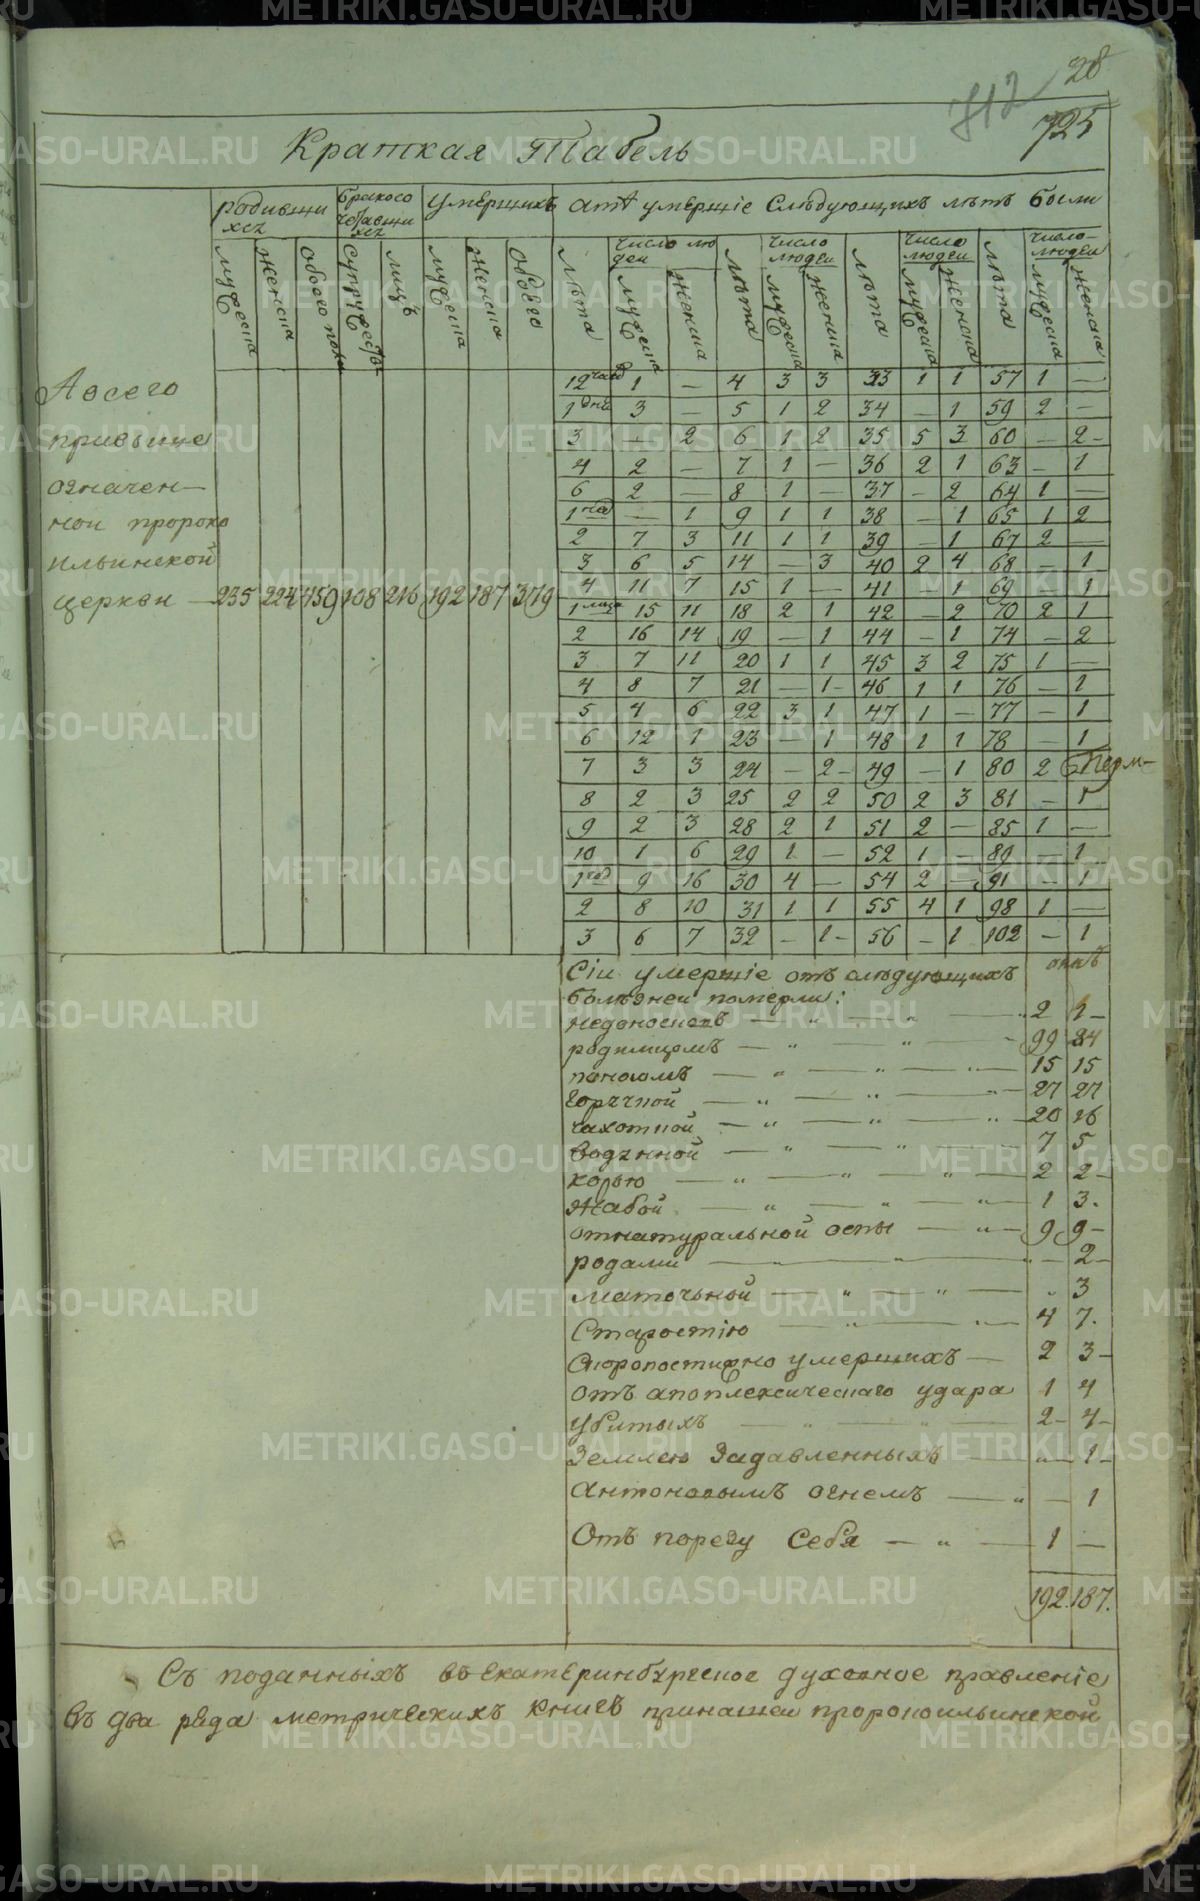 28
712
725
Краткая Табель
родивши
хся
бракосо
четавши
хся
умершихъ
аты умершіе Слѣдующихъ лѣтъ были
мужеска
женска
обоего пола
супружествъ
лицъ
мужеска
женска
обоего
лѣта
число лю
деи
мужеска
женска
лѣта
число
людеи
мужеска
женска
лѣта
число
людеи
мужеска
женска
лѣта
число
людеи
мужеска
женска
Авсего
привыше
означен—
нои пророко
ильинской
церкви — 235 224 459 108 216 192 187 379
12 часо 1 — 4 3 3 33 1 1 57 1 —
1 дня 3 — 5 1 2 34 — 1 59 2 —
3 — 2 6 1 2 35 5 3 60 — 2 -
4 2 — 7 1 — 36 2 1 63 — 1
6 2 — 8 1 — 37 — 2 64 1 —
1 нед — 1 9 1 1 38 — 1 65 1 2
2 7 3 11 1 1 39 — 1 67 2 —
3 6 5 14 — 3 40 2 4 68 — 1
4 11 7 15 1 — 41 — 1 69 — 1
1 мца 15 11 18 2 1 42 — 2 70 2 1
2 16 14 19 — 1 44 — 1 74 — 2
3 7 11 20 1 1 45 3 2 75 1 —
4 8 7 21 — 1 - 46 1 1 76 — 1
5 4 6 22 3 1 47 1 — 77 — 1
6 12 1 23 — 1 48 1 1 78 — 1
7 3 3 24 — 2 - 49 — 1 80 2 Перм—
8 2 3 25 2 2 50 2 3 81 — 1
9 2 3 28 2 1 51 2 — 85 1 —
10 1 6 29 1 — 52 1 — 89 — 1
1 год 9 16 30 4 — 54 2 — 91 — 1
2 8 10 31 1 1 55 4 1 98 1 —
3 6 7 32 — 1 - 56 — 1 102 — 1
Сіи умершіе отъ слѣдующихъ
болѣзнеи померли:
недоноскъ — „ — „ — „ 2 1 —
родимцомъ — „ — „ — 99 84
поносомъ — „ — „ — „ — 15 15
Горячной — „ — „ — „ — 27 27
чахотной — „ — „ — „ — 20 16
водяной — „ — „ — 7 5
корью — „ — „ — „ — 2 2 -
Жабой — „ — „ — „ — 1 3.
отнатуральной оспы — „ — 9 9 -
родами — „ — „ — 2 -
маточьной — „ — „ — „ 3
Старостію — „ — „ — 4 7.
Скоропостижно умершихъ — 2 3 —
отъ апоплексическаго удара 1 4
убитыхъ — „ — „ — 2 - 4 -
Землею Задавленныхъ — „ — 1 -
Антоновымъ огнемъ — „ — 1
Отъ порезу Себя — „ — 1 —
192. 187.
Съ поданныхъ въ Екатеринбургское духовное правленіе
въ два ряда метрическихъ книгъ принашеи пророкоильинской
METRIKI.GASO-URAL.RU